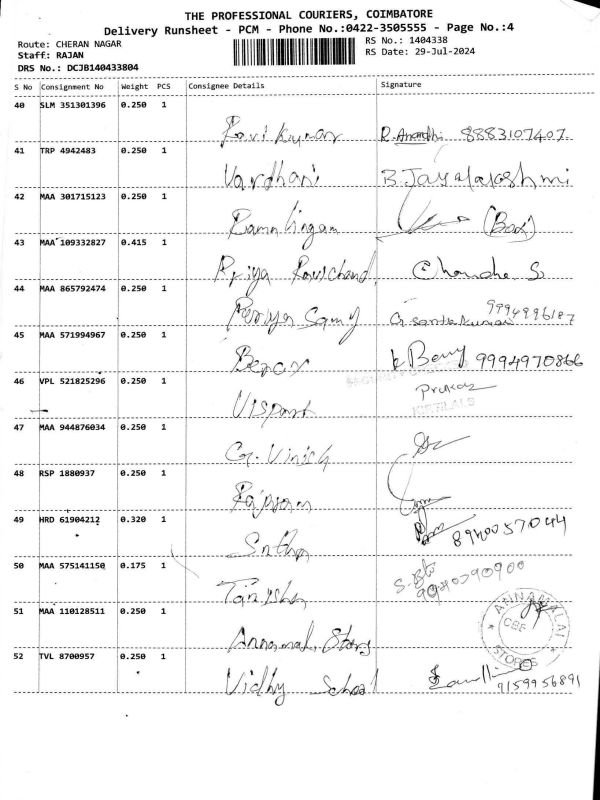 THE PROFESSIONAL COURIERS, COIMBATORE
Delivery Runsheet - PCM - Phone No.:0422-3505555 - Page No.:4
Route: CHERAN NAGAR RS No.: 1404338
Staff: RAJAN RS Date: 29-Jul-2024
DRS No.: DCJB140433804
S No Consignment No Weight PCS Consignee Details Signature
40 SLM 351301396 0.250 1
Ravi Kumar R. Anandhi 8883107407
41 TRP 4942483 0.250 1
Vardhani B Jayalakshmi
42 MAA 301715123 0.250 1
Ramalingam (Box)
43 MAA 109332827 0.415 1
Priya Ravichand Chandra S
44 MAA 865792474 0.250 1
Periya Samy 9994996187
45 MAA 571994967 0.250 1
k Beny 9994970866
46 VPL 521825296 0.250 1
47 MAA 944876034 0.250 1
G. Vinith
48 RSP 1880937 0.250 1
Rajaram
49 HRD 61904212 0.320 1
8940057044
50 MAA 575141150 0.175 1
51 MAA 110128511 0.250 1
ANNAMALAI STORES CBE
Annamalai Stores
52 TVL 8700957 0.250 1
Vidhy School 9159956891